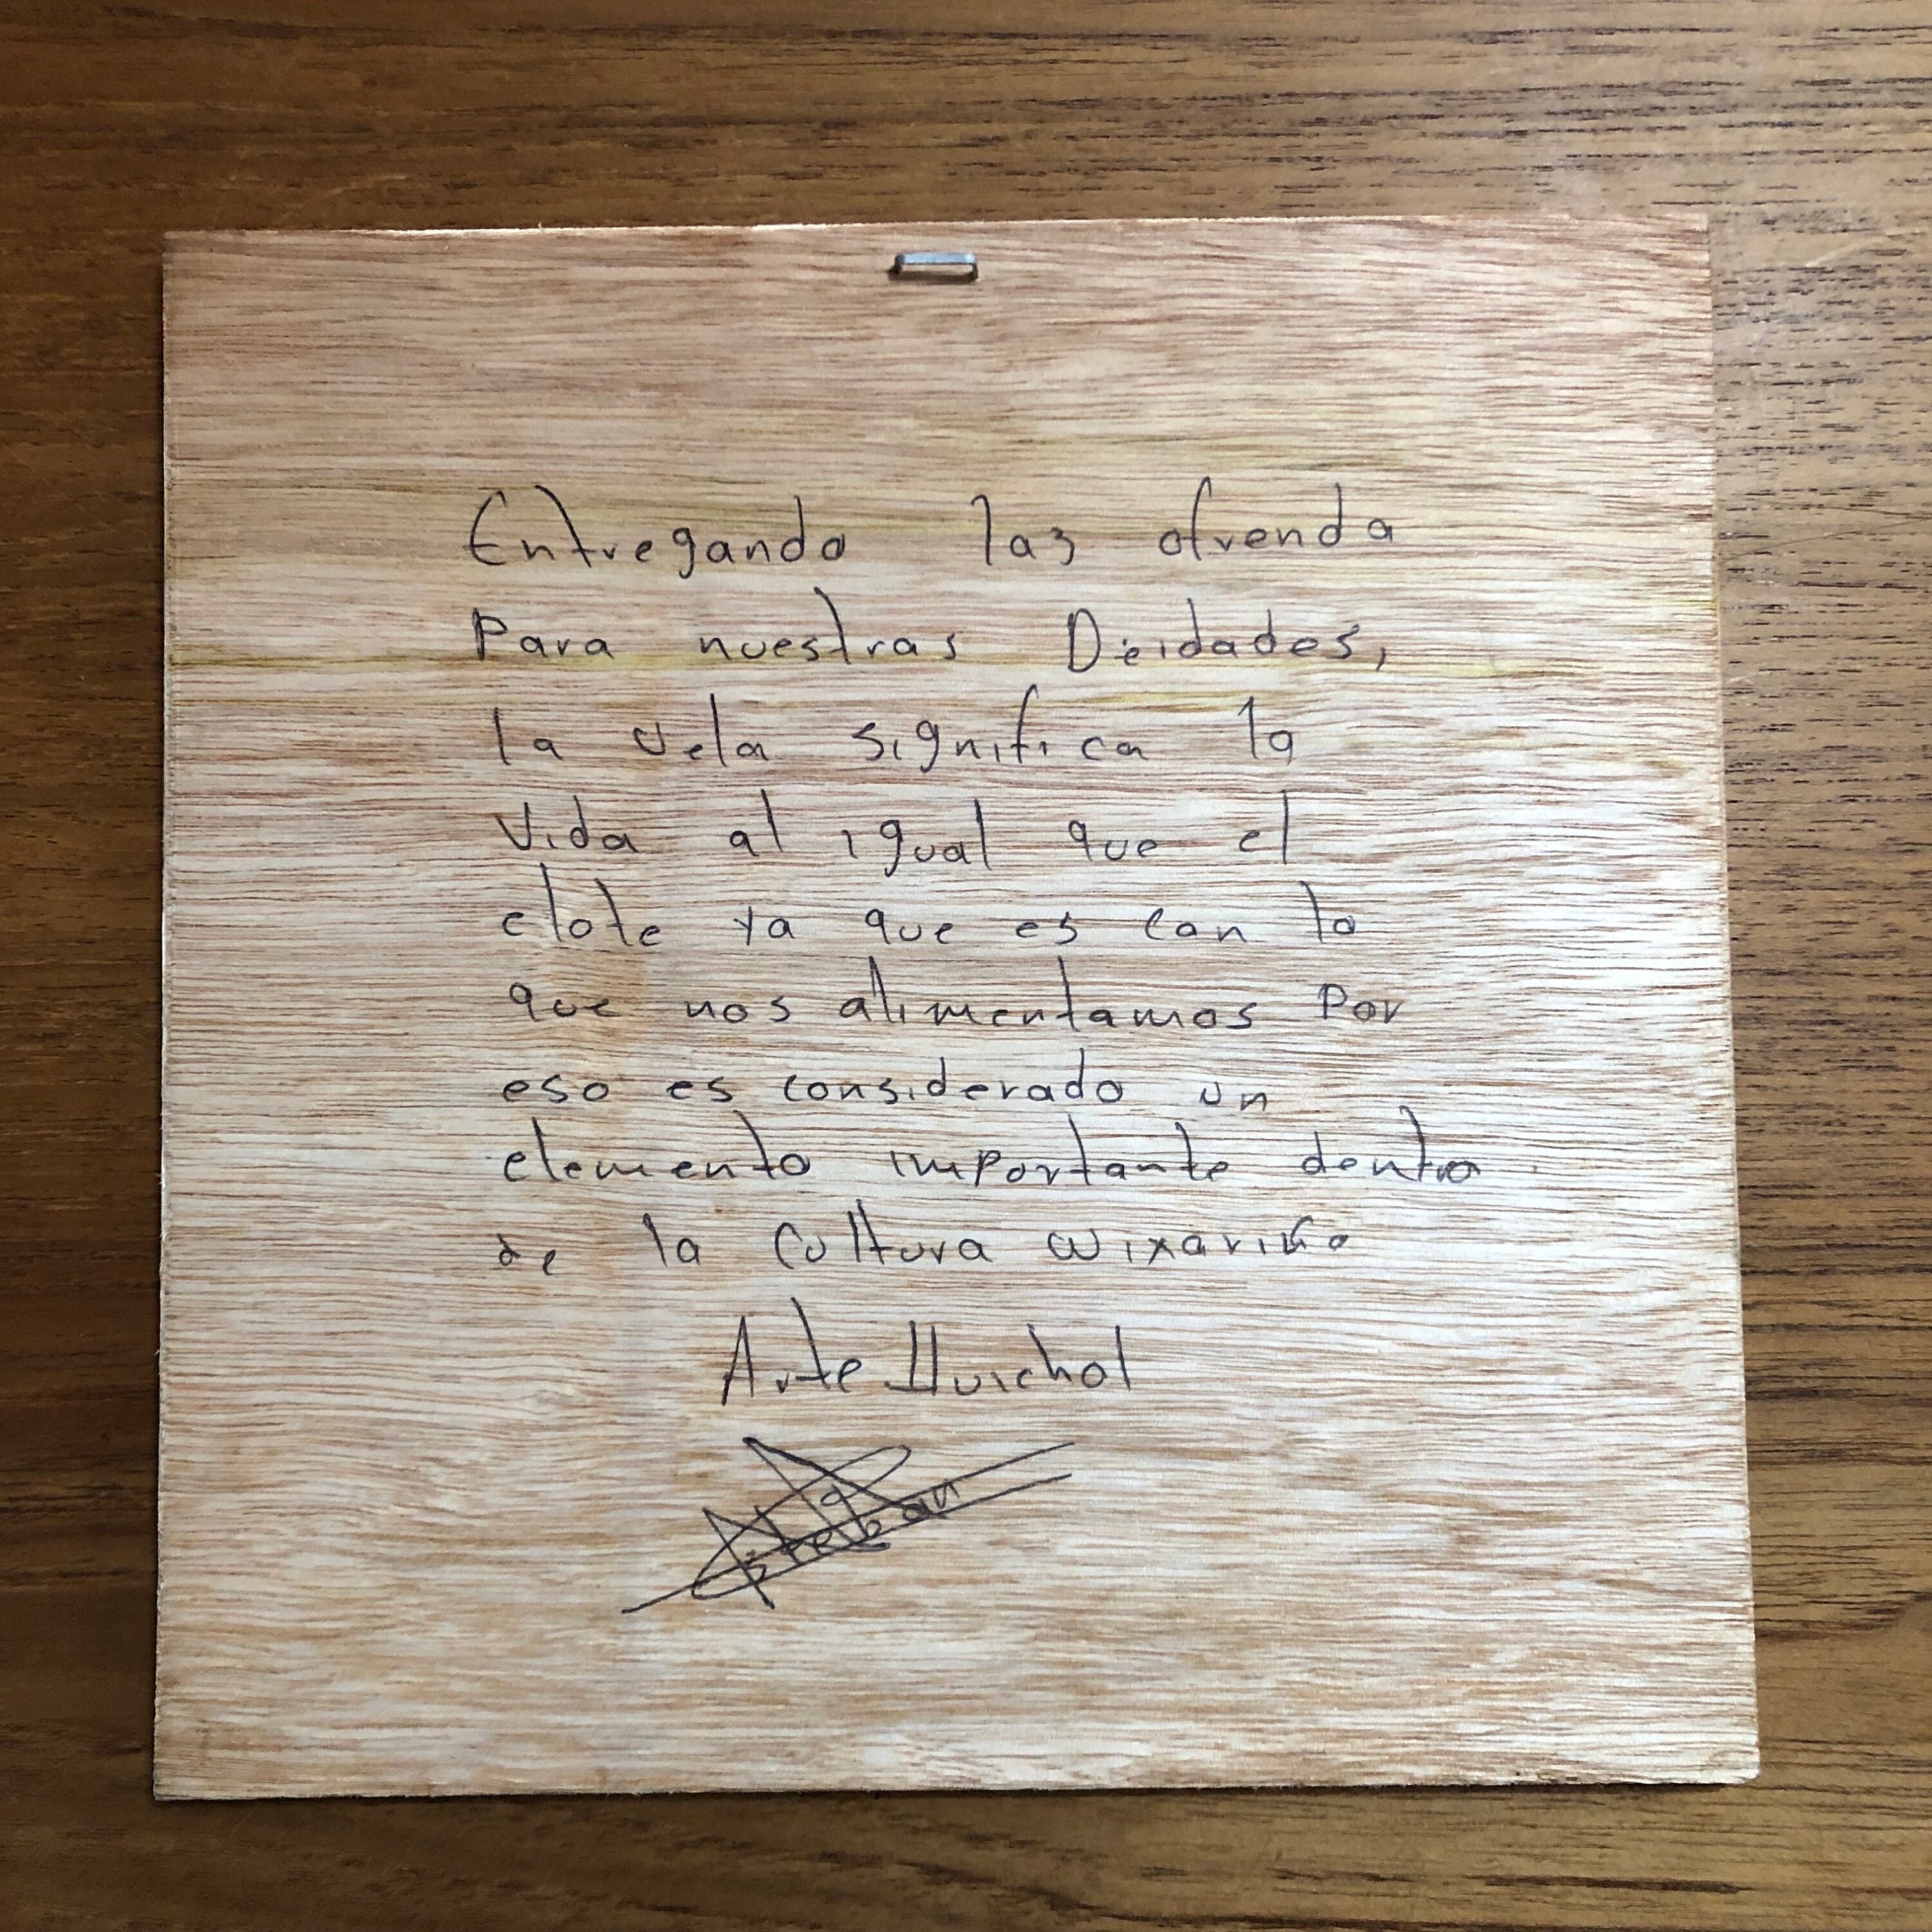 Entregando las ofrenda
Para nuestras Deidades,
la vela significa la
Vida al igual que el
elote ya que es con lo
que nos alimentamos Por
eso es considerado un
elemento importante dentro
de la Cultura wixarika
Arte Huichol